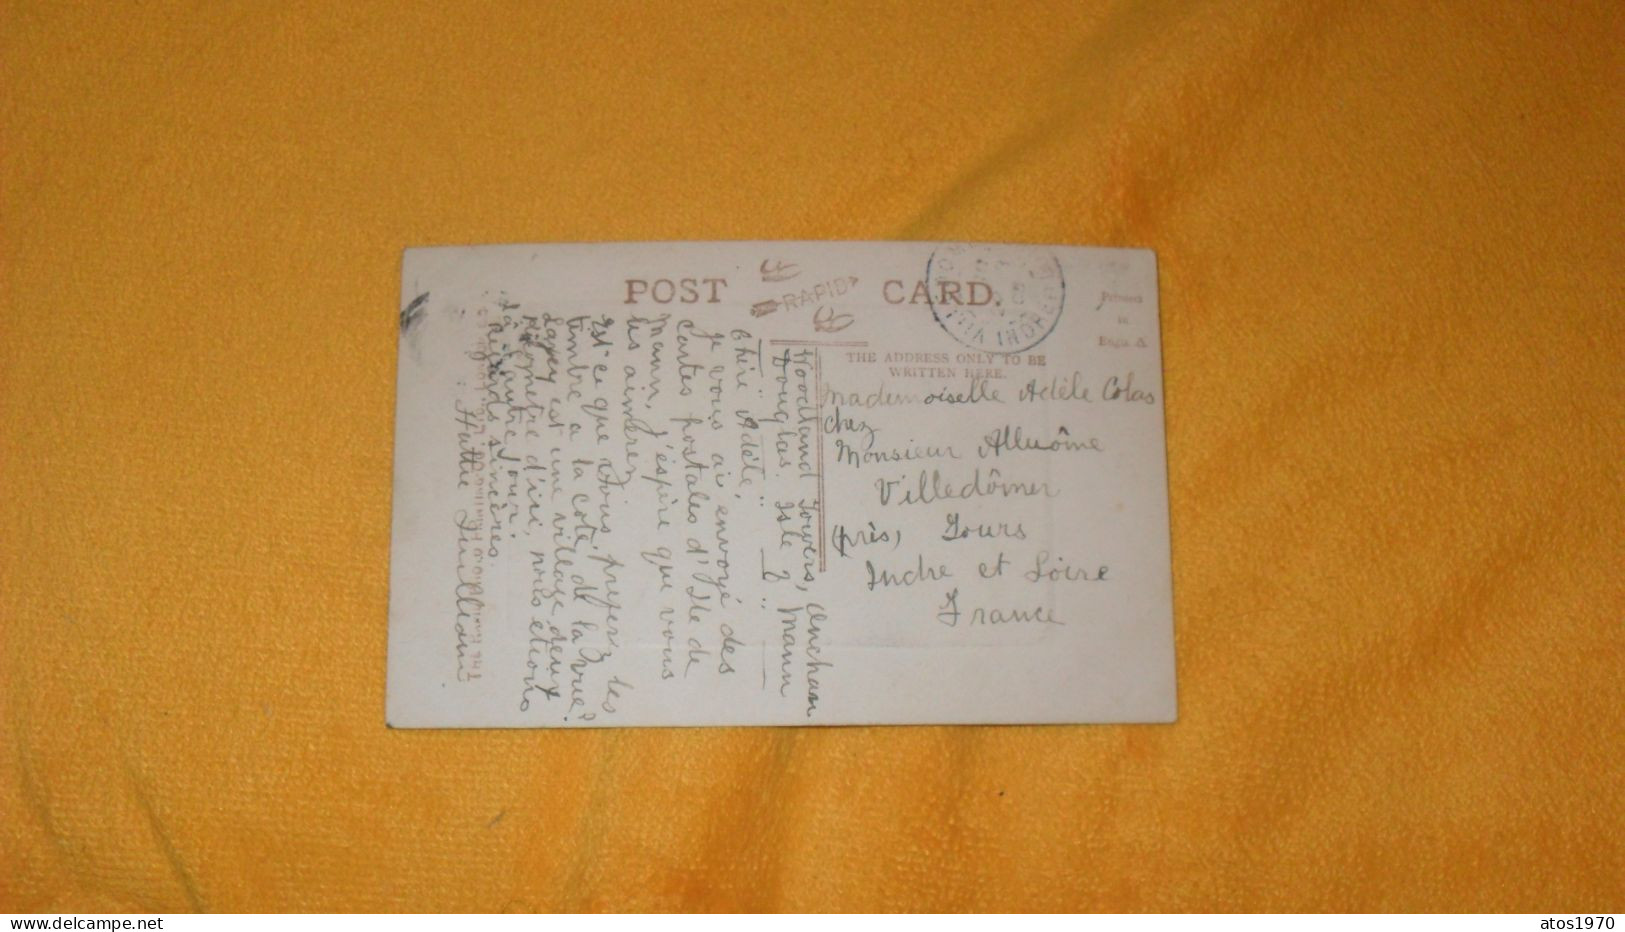 POST CARD.
RAPID
Printed
in
THE ADDRESS ONLY TO BE
WRITTEN HERE.
Mademoiselle Adèle Colas
chez
Monsieur Alluôme
Villedômer
(près, Tours
Indre et Loire
France
Woodland Towers, Onchan
Douglas. Isle of Mann
Chère Adèle,
Je vous ai envoyé des
cartes postales d'Ile de
Mann, j'espère que vous
les aimerez.
Est-ce que vous préférez les
timbre a la coté de la vue?
Laxey est une village deux
kilometre d'ici, nous etions
là l'autre jour.
Regards sincères.
Hattie
INDRE
atos1970